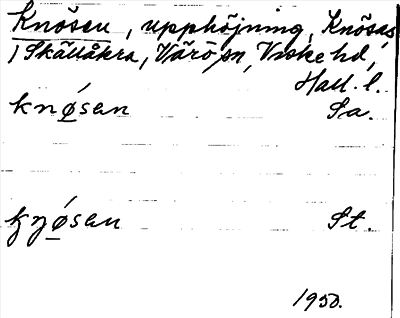 Knösen, upphöjning, Knösas
i Skällåkra, Värö sn, Viske hd,
Hall. l.
knǿ̲sen Sa.
kn̥ǿ̲sen St.
1950.